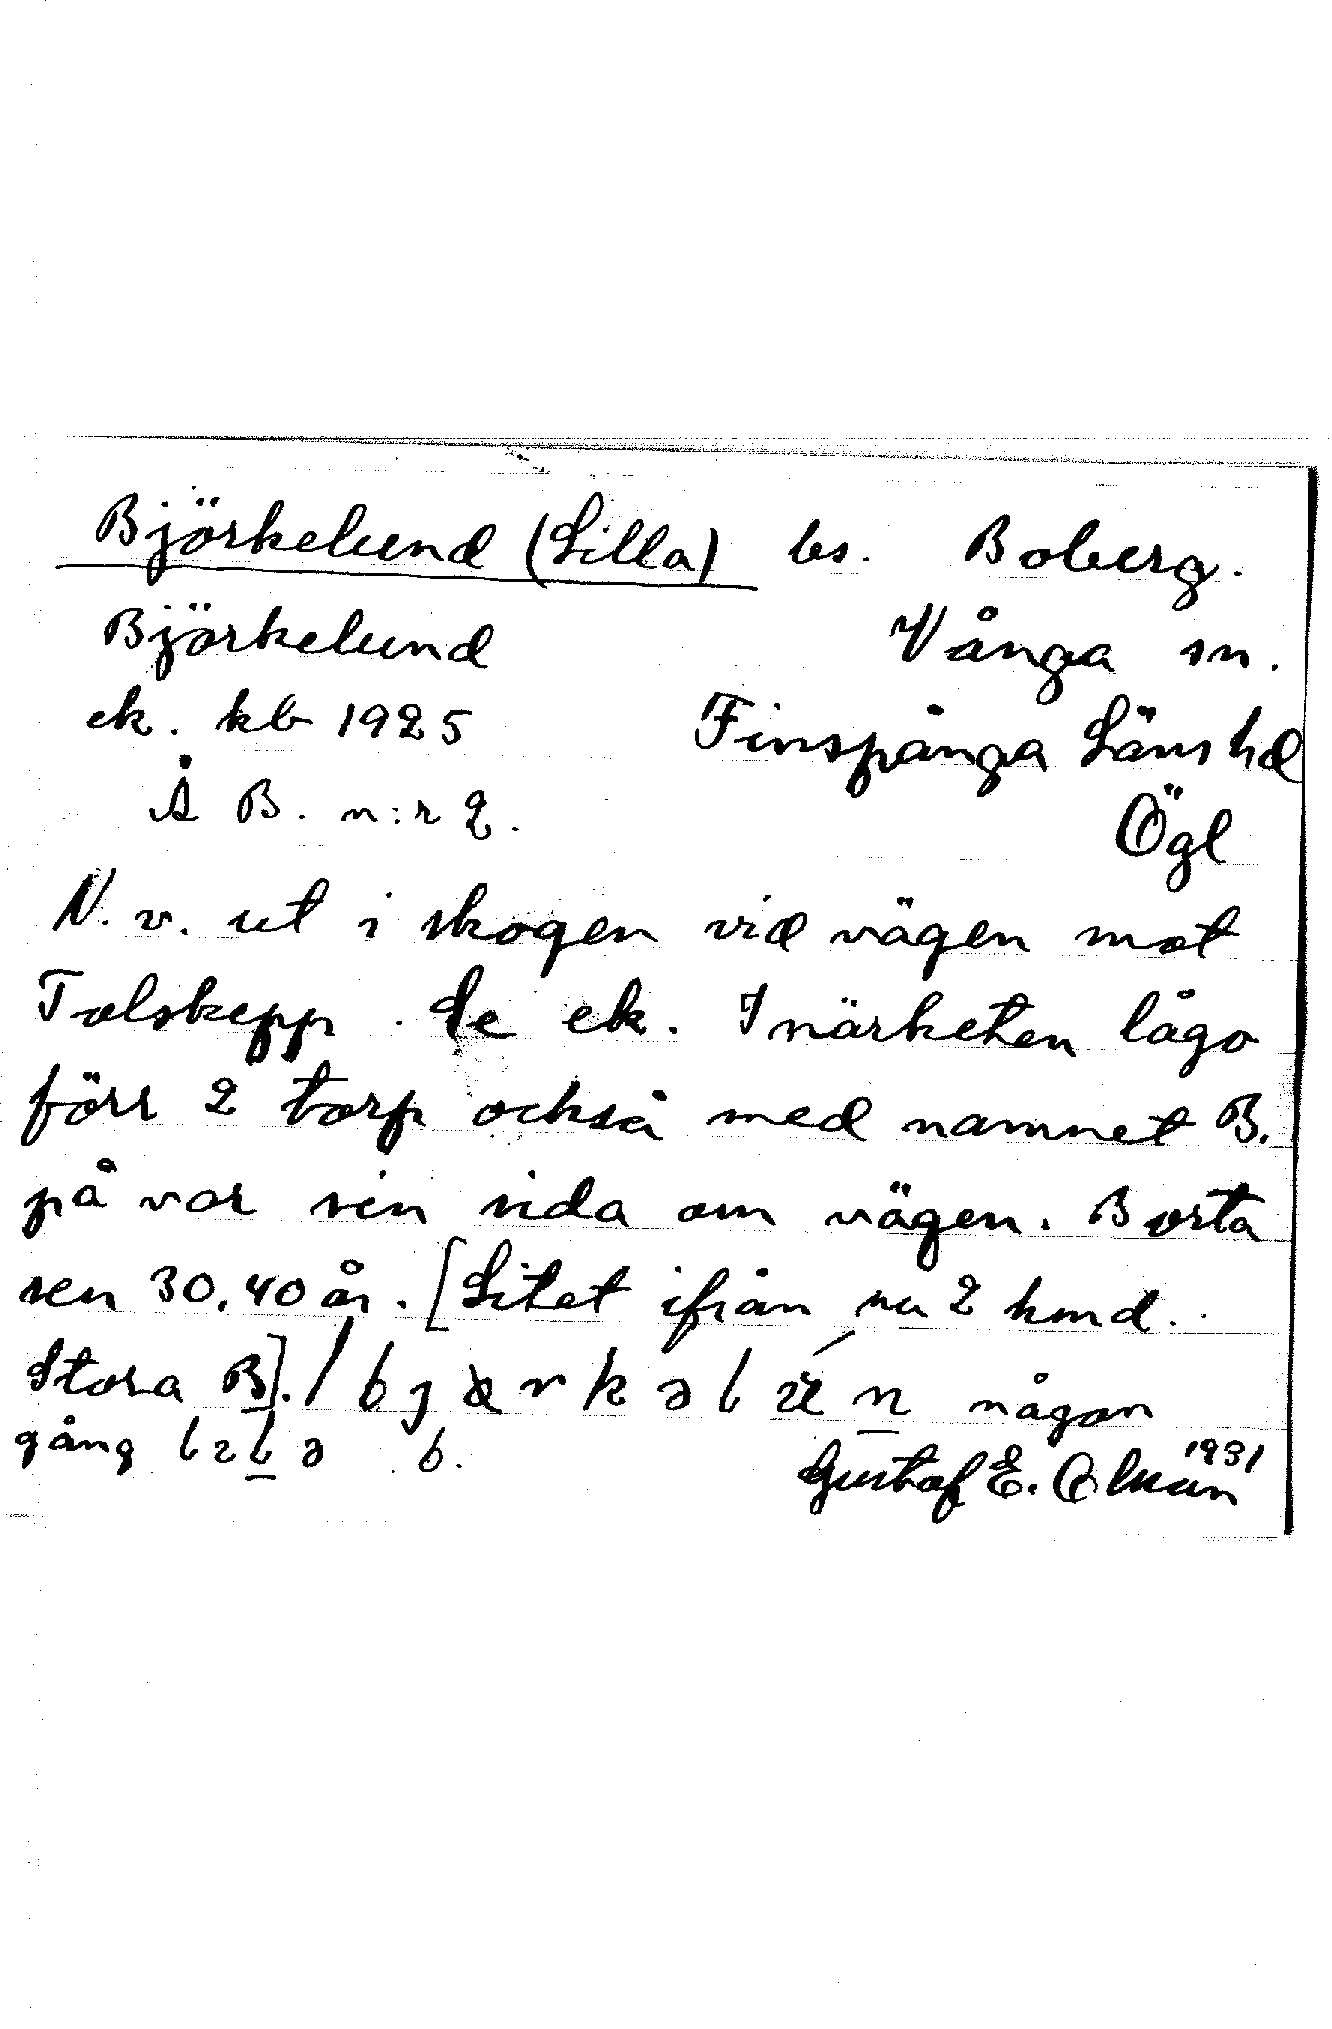 Björkelund (Lilla) bs. Boberg.
Björkelund Vånga sn.
ek. kb 1925 Finspånga Läns hd
Å B. n:r 2. Ögl
N. v. ut i skogen vid vägen mot
Tolskepp. Se ek. I närheten lågo
förr 2 torp också med namnet B.
på var sin sida om vägen. Borta
sen 30, 40 år. [Litet ifrån nu 2 hmd.
Stora B]. / b j r k ə l n någon
gång l ə b.
Gustaf E. 1931